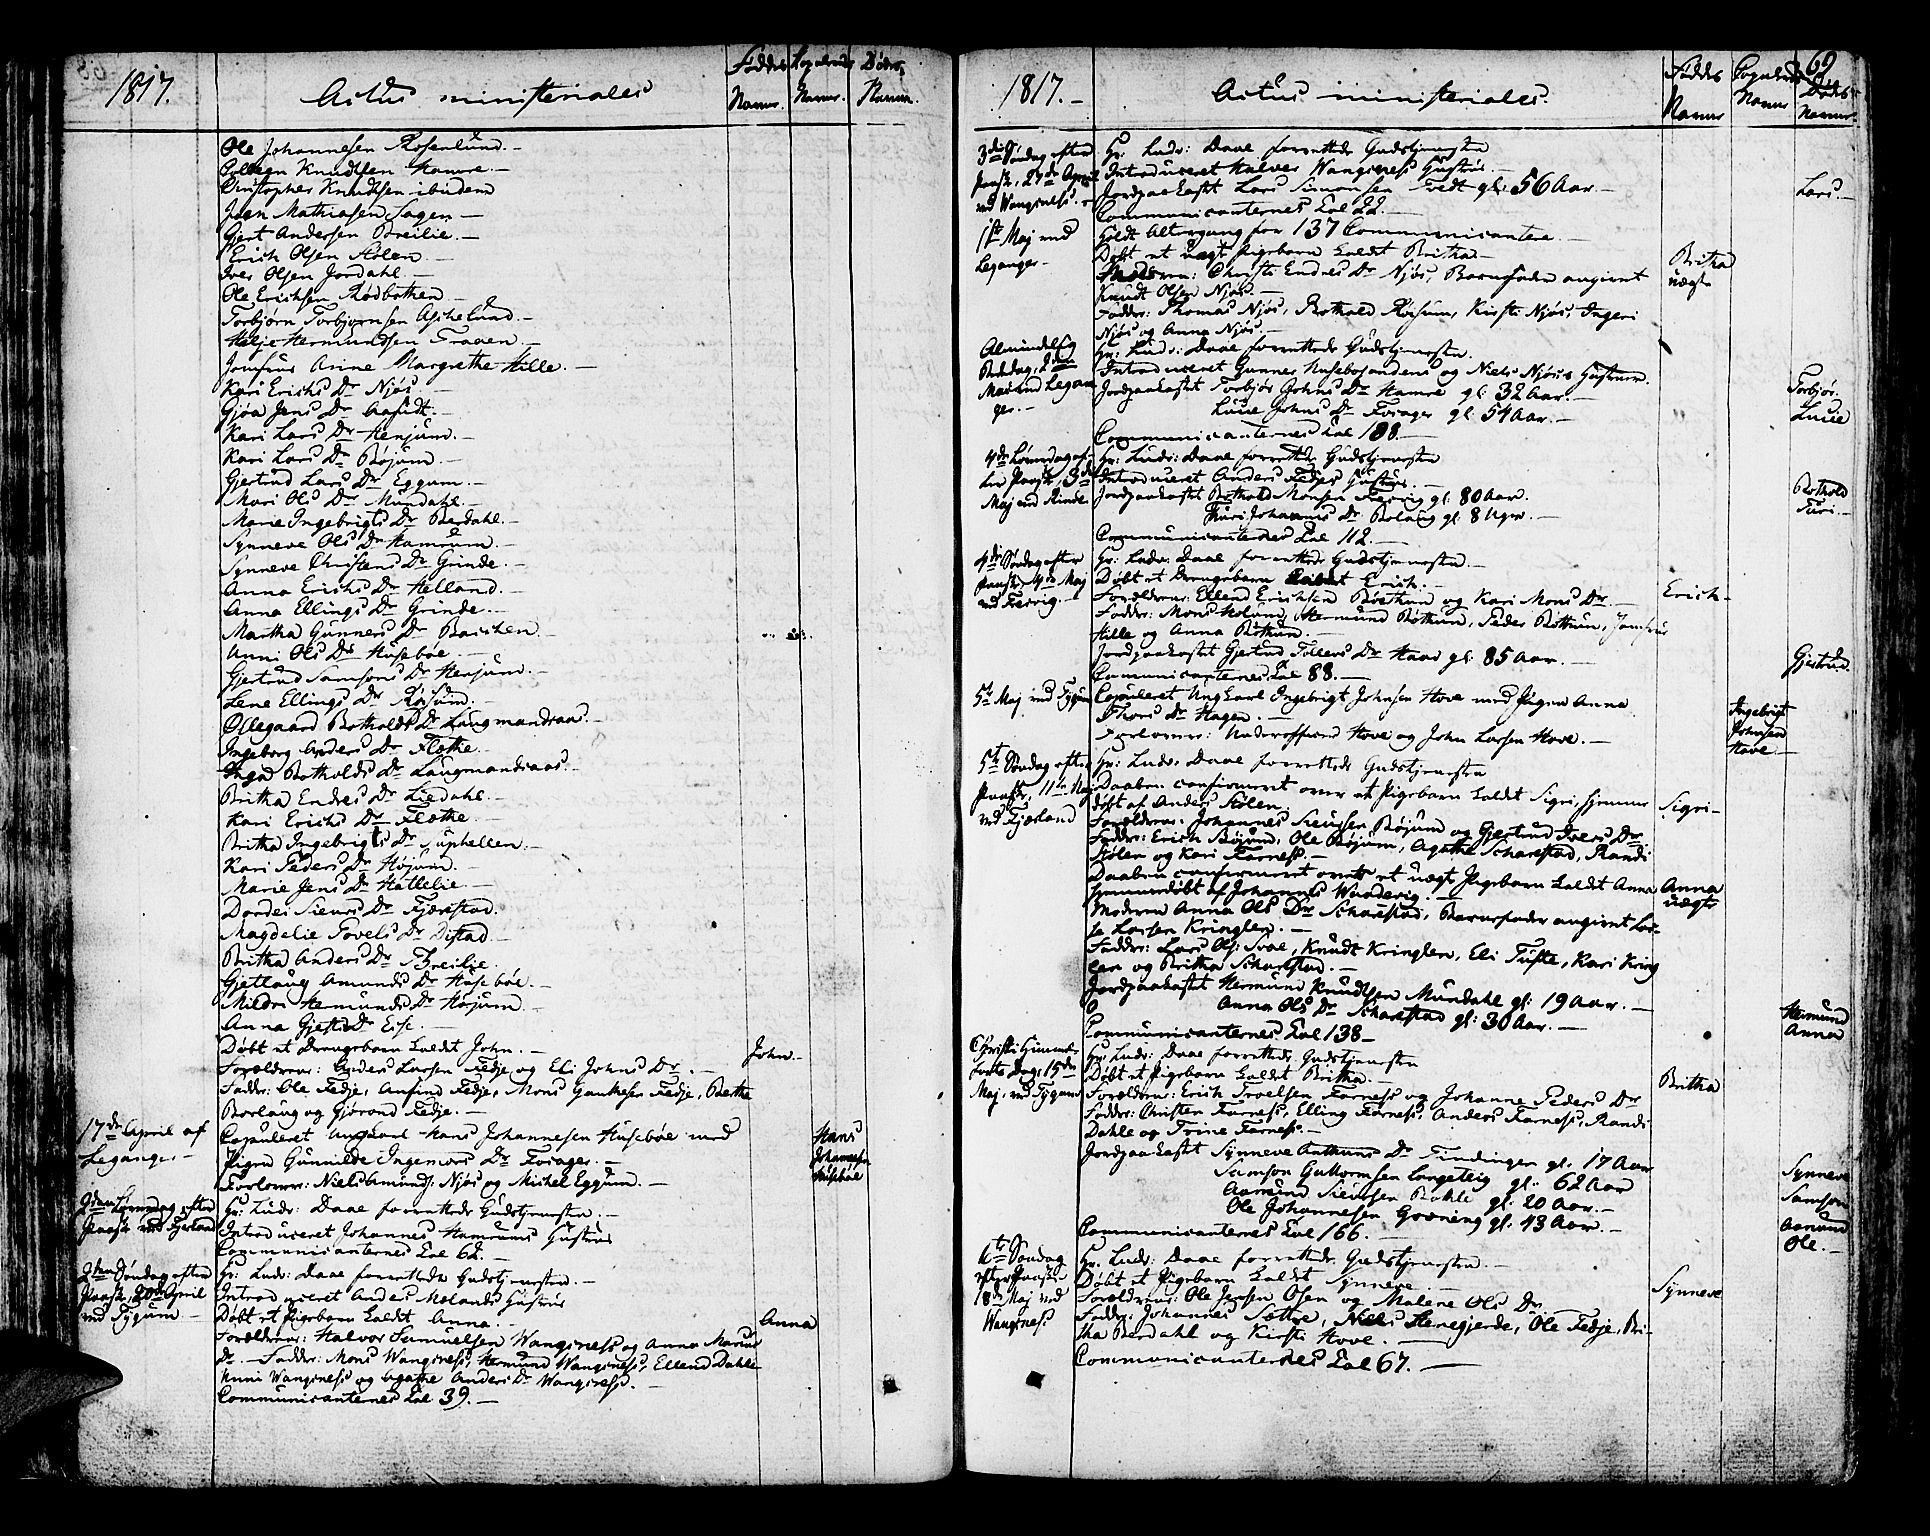 1817.
Actus ministeriales
Fødde Navne.
Copulerede Navne.
Døde Navne.
Ole Johannesen Rosenlund.—
Knudsen Hamre.—
Christopher Knudsen ibidem
Joen Mathiasen Sagen —
Gjert Andersen Breilie.—
Erich Olsen Stølen.—
Iver Olsen Jordahl.—
Ole Erichsen Rødbotten —
Torbjørn Torbjørnsen Aschelund.—
Helje Hermundsen Traaen.—
Jomfrue Anne Margrethe Hille.—
Kari Erichs Dr Njøs.—
Gjøa Jens Dr
Kari Lars Dr Henjum.—
Kari Lars Dr Bøjum.—
Gjertrud Lars Dr Eggum.—
Mari Ols Dr Mundahl.—
Marie Ingebrigts Dr Berdahl.—
Synneve Ols Dr Hamrum.—
Synneve Christens Dr Grinde.—
Anna Erichs Dr Helland.—
Anna Ellings Dr Grinde.—
Martha Gunners Dr Bacchen.—
Anni Ols Dr Husebøe.—
Gjertrud Samsons Dr Henjum.—
Lene Ellings Dr Røsum.—
Øllegaard Botholds Dr Laugmandraas.—
Ingeborg Anders Dr Fløthe.—
Inga Botholds Dr Laugmandraas.—
Britha Endres Dr Liedahl.—
Kari Erichs Dr Fløthe.—
Britha Ingebrigts Dr Suphellen.—
Kari Peders Dr Højum.—
Marie Jens Dr Hatlelie.—
Dordei Siurs Dr Fjærestad.
Magdelie Povels Dr Distad.—
Britha Anders Dr Breilie.
Gjetlaug Amunds Dr Husebøe.—
Mildri Hermunds Dr Højum.—
Anna Gjerts Dr Eise.—
Døbt et Drengebarn kaldet John.—
John.—
Forældrene: Anders Larsen Fedje og Eli Johns Dr.—
Faddr: Ole Fedje, Anfind Fedje, Mons Fedje, Berthe
Borlaug og Gjørond Fedje.—
17de April af
Leganger —
Copuleret Ungkarl Hans Johannesen Husebøe med
Pigen Gunnilde Ingemors Dr Forager.—
Forlovere: Niels Amunds: Njøs og Michel Eggum.—
Hans
Johannesen
Husebøe
2den Løverdag efter
Paask ved Fjerland
Hr: Ludv: Daae forrettede Gudstjenesten.—
Introduceret Johannes Hamrums Hustrue
Communicanternes Tal 62.—
2den Søndag efter
Paask, 20de April
ved Tygum —
Hr: Ludv: Daae forrettede Gudstjenesten.—
Introduceret Anders Mælands Hustrue
Døbt et Pigebarn kaldet Anna.—
Anna
Forældrene: Halvor Samuelsen Wangsness og Anna Marcus
Dr.— Faddr: Mons Wangsness, Hermund Wangsness, Ellend Dahle
Anni Wangsness og Agathe Anders Dr Wangsness.—
Communicanternes Tal 39.—
1817.—
Actus ministeriales.
Fødde Navne
Copulerede Navne
69
Døde Navne.
3die Søndag efter
Paask, 27de April
ved Wangsness.—
Hr: Ludv: Daae forrettede Gudstjenesten
Introduceret Halvor Wangsness Hustrue.
Jordpaakastet Lars Simonsen Tvedt gl: 56 Aar.—
Lars.—
Communicanternes Tal 22.—
1te Maj ved
Leganger.—
Holdt Altergang for 137 Communicantere.—
Døbt et uægt Pigebarn kaldet Britha.—
Britha
uægte
Moderen: Christi Endres Dr Njøs, Barnefader angivet
Knudt Olsen Njøs.—
Faddr: Thomas Njøs, Bothold Røsum, Kirsti Njøs, Ingeri
Njøs og Anna Njøs.—
Almindelig
Bededag, 2den
Maj ved Legan
ger.—
Hr: Ludv: Daae forrettede Gudstjenesten.
Introduceret Gunner Husebøsandens og Niels Njøs's Hustruer.
Jordpaakastet Torbjør Johns Dr Hamre gl: 32 Aar.—
Lucie Johns Dr Forager gl: 54 Aar.—
Torbjør.
Lucie
Communicanternes Tal 188.—
4de Løverdag ef-
ter Paask, 3de
Maj ved Rinde
Hr: Ludv: Daae forrettede Gudstjenesten
Introduceret Anders Fedjes Hustrue.—
Jordpaakastet Bothold Monsen Feirig gl: 80 Aar.
Turi Johannes Dr Bolaug gl: 8 Uger.—
Bothold
Turi.—
Communicanternes Tal 112.—
4de Søndag efter
Paask, 4de Maj
ved Feirrig.—
Hr: Ludv: Daae forrettede Gudstjenesten.—
Døbt et Drengebarn kaldet Erich.—
Erich.—
Forældrene: Ellend Erichsen Bøthun og Kari Mons Dr.—
Faddr: Mons Holum, Hermund Bøthun, Peder Bøthun, Jomfrue
Hille og Anna Bøthun.—
Jordpaakastet Gjertrud Tollevs Dr Haas gl: 85 Aar.—
Gjertrud.
Communicanternes Tal 88.—
5te Maj ved Tygum
Copuleret Ungkarl Ingebrigt Johnsen Hove med Pigen Anna
Thors Dr Hagen.—
Forlovere: Underofficeer Hove og John Larsen Hove.—
Ingebrigt
Johnsen
Hove.—
5te Søndag efter
Paask, 11te Maj
ved Fjærland
Hr: Ludv: Daae forrettede Gudstjenesten
Daaben confirmeret over et Pigebarn kaldet Sigri, hjemme
døbt af Anders Stølen.
Sigri.—
Forældrene: Johannes Siursen Bøjum og Gjertrud Ivers Dr.
Faddr: Erich Bøjum, Ole Bøjum, Agathe Scharestad, Randi
Stølen og Kari Farness.—
Daaben confirmeret over et uægt Pigebarn kaldet Anna
hjemmedøbt af Johannes—
Anna
uægte
Moderen Anna Ols Dr Scharestad, Barnefader angivet Las-
se Larsen Kringlen.—
Faddr: Lars Ols: Svae, Knudt Kringlen, Eli Tufte, Kari Kring
len og Britha Scharestad.—
Jordpaakastet Hermund Knudtsen Mundahl gl: 19 Aar.—
Anna Ols Dr Scharestad gl: 30 Aar.—
Hermund
Anna
Communicanternes Tal 138—
Christi Himmel-
farts Dag, 15de
Maj, ved Tygum
Hr: Ludv: Daae forrettede Gudstjenesten
Døbt et Pigebarn kaldet Britha.—
Britha
Forældrene: Erich Troelsen Farness og Johanne Peders Dr
Faddr: Christen Farness, Elling Farness, Anders Farness, Randi
Dahle og Trine Farness.—
Jordpaakastet Synneve Anthuns Dr Tindingen gl: 17 Aar
Samson Guttormsen Langeteig gl: 62 Aar
Aamund Siursen Bahle gl: 20 Aar.—
Ole Johannesen Grøning gl: 43 Aar.—
Synneve
Samson
Aamund
Ole.—
Communicanternes Tal 166.—
6te Søndag
efter Paaske
18de Maj ved
Wangsness
Hr: Ludv: Daae forrettede Gudstjenesten.—
Døbt et Pigebarn kaldet Synneve —
Synneve
Forældrene: Ole Jensen Osen og Malene Ols Dr.
Faddr: Johannes Sættre, Niels Henegjerde, Ole Fedje, Bri-
tha Berdahl og Kirsti Hove.—
Communicanternes Tal 67.—